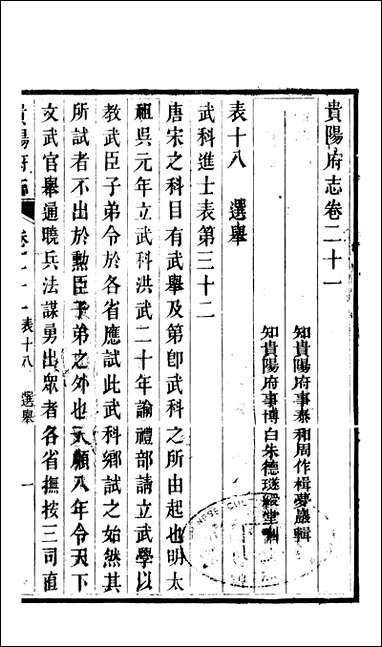 貴陽府志卷二十一
知貴陽府事泰和周作楫夢巖輯
知貴陽府事博白朱德璲綬堂刊
表十八 選舉
武科進士表第三十二
唐宋之科目有武舉及第卽武科之所由起也明太
祖吳元年立武科洪武二十年諭禮部請立武學以
教武臣子弟令於各省應試此武科鄉試之始然其
所試者不出於勲臣子弟之外也天順八年令天下
文武官舉通曉兵法謀勇出眾者各省撫按三司直
貴陽府志 卷二十一 表十八 選舉 一